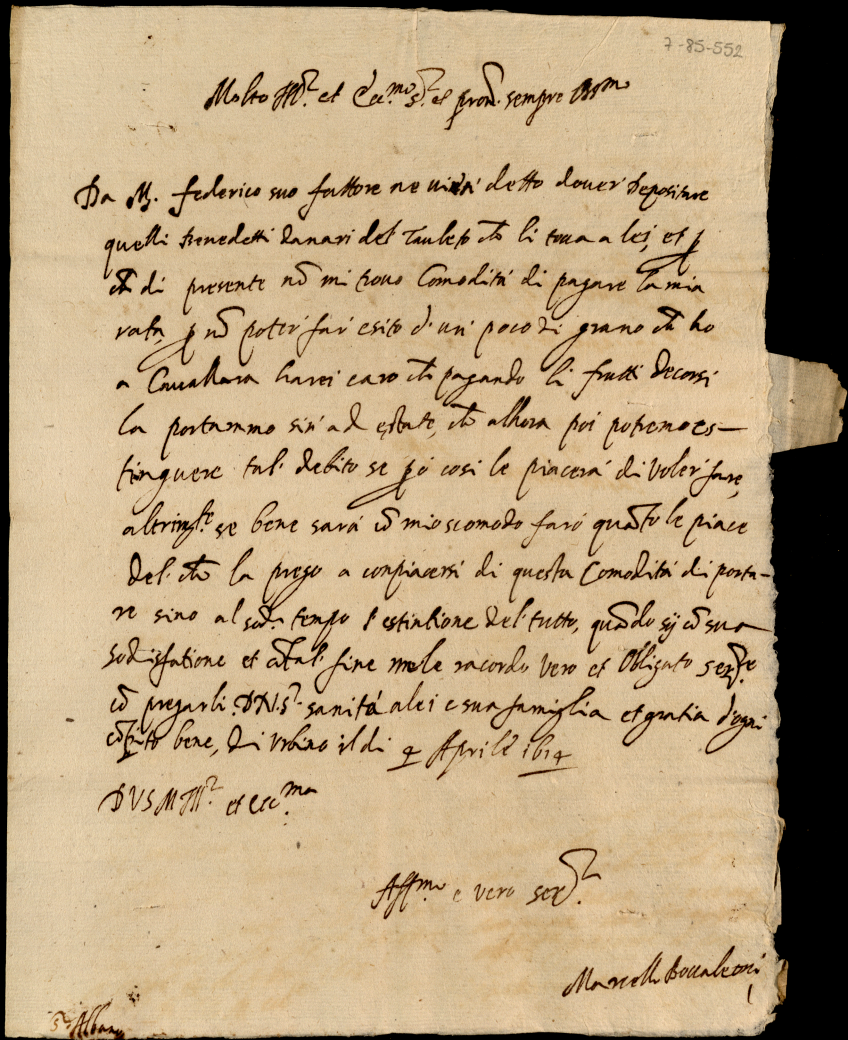 7-85-552
Molto Ill.r et Ecc.mo S.r et pron. sempre oss.mo
Da M. federico suo fattore ne vien detto dover depositare
quelli benedetti danari del che li tocca a lei, et p
ch di presente nõ mi trovo Comodità di pagare la mia
rata, p nõ poter far esito d'un poco di grano ch ho
a Cavallara harei caro ch pagando li frutti decorsi
la portammo sin ad estate, ch alhora poi potremo es-
tinguere tal debito se però cosi le piacerà di voler fare,
altrim.te se bene sarà cõ mio scomodo farò quãto le piace
del ch la prego a conpiacersi di questa Comodità di porta-
re sino al sod.o tempo l'estintione del tutto, quãdo sij cõ sua
sodisfatione et cõ tal fine me le racordo vero et Obligato ser.re
cõ pregarli D N. S.r sanità a lei e sua famiglia et gratia d'ogni
cõpito bene, di Urbino il di 4 Aprile 1614
D V S M Ill.r et Ecc.ma
Aff.mo e vero ser.r
Marcello Boccalecori
S.r Albano